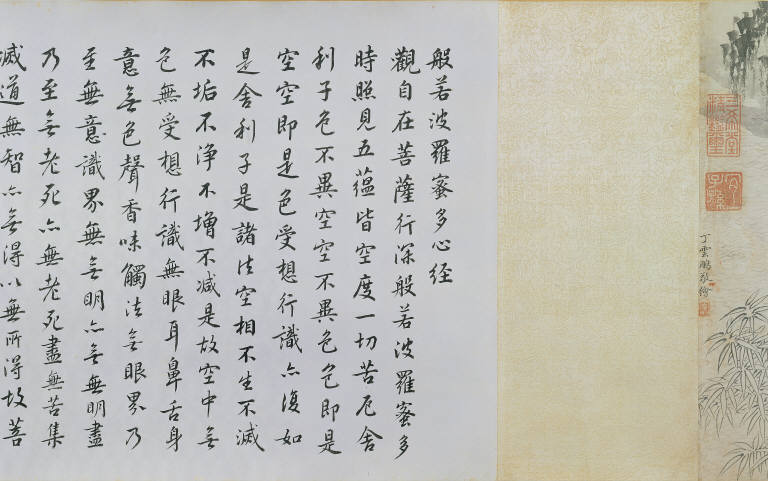 三希堂精鑑璽
宜子孫
丁雲鵬敬繪
般若波羅蜜多心経
觀自在菩薩行深般若波羅蜜多
時照見五蘊皆空度一切苦厄舍
利子色不異空空不異色色即是
空空即是色受想行識亦復如
是舍利子是諸法空相不生不滅
不垢不淨不增不減是故空中無
色無受想行識無眼耳鼻舌身
意無色聲香味觸法無眼界乃
至無意識界無無明亦無無明盡
乃至無老死亦無老死盡無苦集
滅道無智亦無得以無所得故菩